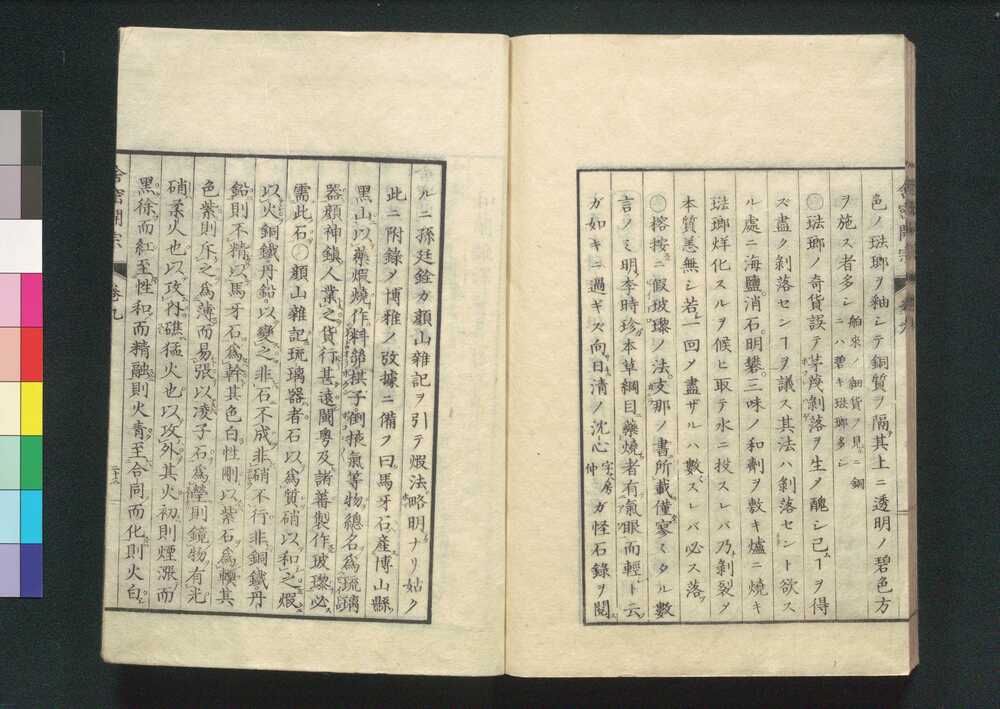 色ノ琺瑯ヲ釉シテ銅質ヲ隔其上ニ透明ノ碧色方
ヲ施ス者多シ舶來ノ細貨ヲ見ルニ銅
ニハ碧キ琺瑯多シ
琺瑯ノ奇貨誤テ茅茂剝落ヲ生ノ醜シ已ムヿヲ得
ズ盡ク剝落センヿヲ議ス其法ハ剝落セント欲ス
ル處ニ海鹽消石明礬三味ノ和劑ヲ敷キ爐ニ燒キ
琺瑯烊化スルヲ候ヒ取テ水ニ投スレバ乃剝裂ノ
本質恙無シ若一回ノ盡ザルハ數スレバ必ス落
榕按ニ假玻瓈ノ法支那ノ書所載僅寥タル數
言ノミ明李時珍本草綱目藥燒者有氣眼而輕ト云
ガ如キニ過ギズ向日淸ノ沈心字房仲ガ怪石錄ヲ閱
ルニ孫廷銓ガ顏山雜記ヲ引テ煆法略明ナリ姑ク
此ニ附錄ヲ博雅ノ攷據ニ備フ曰馬牙石產博山縣
黑山以藥煆燒作料諸棋子倒掖氣等物總名爲琉璃
器顏神鎭人業之貨行甚遠閩粵及諸蕃製作玻瓈必
需此石顏山雜記琉璃器者石以爲質硝以和之煆
以火銅鐵丹鉛以變之非石不成非硝不行非銅鐵丹
鉛則不精以馬牙石爲幹其色白性剛以紫石爲輭其
色紫則斥之爲薄而易張以凌子石爲瑩則鏡物有光
硝柔火也以攻內礁猛火也以攻外其火初則煙漲而
黑徐而紅至性和而精融則火靑至合同而化則火白
舍密開宗
卷九